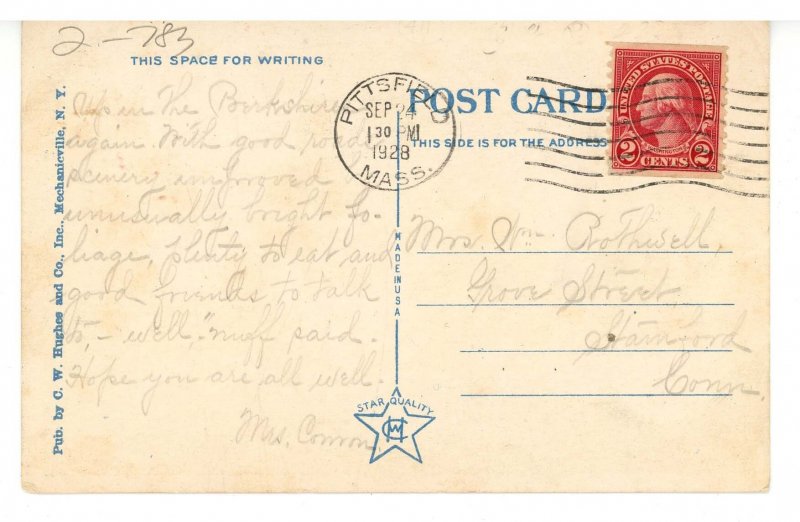 2-783
THIS SPACE FOR WRITING
Up in the Berkshires
again. With good roads,
scenery improved
unusually bright fo-
liage, plenty to eat and
good friends to talk
to, - well, "nuff said.
Hope you are all well.
Mrs.
Pub. by C. W. Hughes and Co., Inc., Mechanicville, N. Y.
PITTSFIELD
SEP 24
1 30 PM
1928
MASS.
POST CARD
THIS SIDE IS FOR THE ADDRESS
UNITED STATES POSTAGE
2 CENTS 2
MADE IN USA
Mrs. Wm. Rothwell,
Grove Street,
Stamford
Conn.
STAR QUALITY
CWH